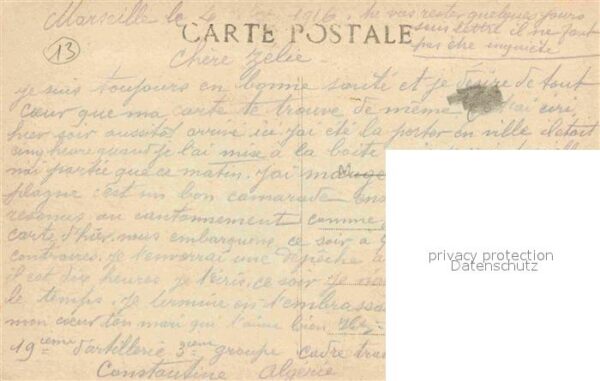 Marseille le 4 1916. tu vas rester quelques jours
sans lettre il ne faut
pas être inquiète
CARTE POSTALE
13
Chère Zélie
Je suis toujours en bonne santé et je désire de tout
cœur que ma carte te trouve de même j'ai écri
hier soir aussitot arrivé ici j'ai été la porter en ville il était
cinq heure quand je l'ai mise à la boite
partie que ce matin. j'ai mangé
c'est un bon camarade
revenus au cantonnement comme
carte d'hier. nous embarquons ce soir à
contraires. Je t'enverrai une dépêche
il est dix heures je t'écris. ce soir je
le temps. Je termine en t'embrassa
mon cœur ton mari qui t'aime bien
19ième d'artillerie 3ième groupe Cadre
Constantine Algérie
privacy protection
Datenschutz